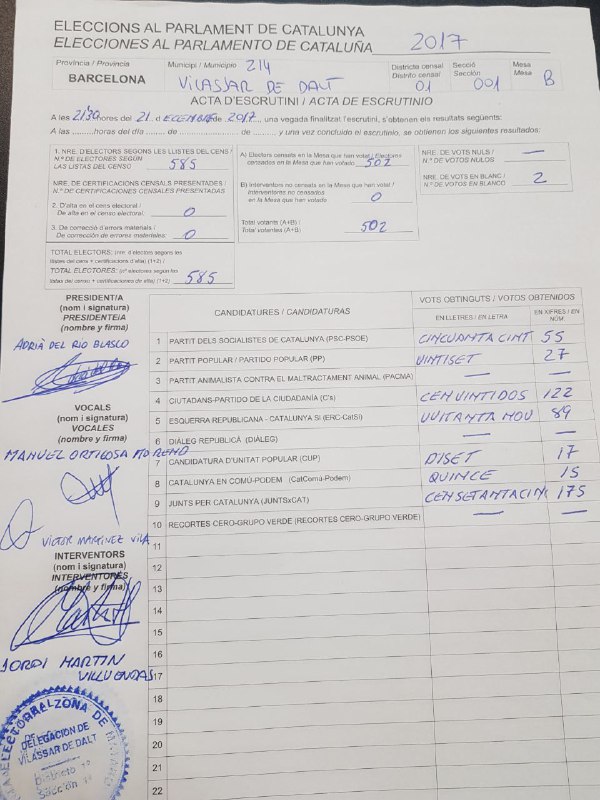 ELECCIONS AL PARLAMENT DE CATALUNYA
ELECCIONES AL PARLAMENTO DE CATALUÑA 2017
Província / Provincia
BARCELONA
Municipi / Municipio 214
VILASSAR DE DALT
Districte censal
Distrito censal
01
Secció
Sección
001
Mesa
Mesa B
ACTA D'ESCRUTINI / ACTA DE ESCRUTINIO
A les 21'30 hores del 21 de DECEMBRE de 2017, una vegada finalitzat l'escrutini, s'obtenen els resultats següents:
A las ......... horas del día ....... de ................ de ........, y una vez concluido el escrutinio, se obtienen los siguientes resultados:
1. NRE. D'ELECTORS SEGONS LES LLISTES DEL CENS /
N.º DE ELECTORES SEGÚN
LAS LISTAS DEL CENSO 585
NRE. DE CERTIFICACIONS CENSALS PRESENTADES /
N.º DE CERTIFICACIONES CENSALES PRESENTADAS
2. D'alta en el cens electoral /
De alta en el censo electoral: 0
3. De correcció d'errors materials /
De corrección de errores materiales: 0
TOTAL ELECTORS: (nre. d'electors segons les
llistes del cens + certificacions d'alta) (1+2) /
TOTAL ELECTORES: (nº electores según las
listas del censo + certificaciones de alta) (1+2) 585
A) Electors censats en la Mesa que han votat / Electores
censados en la Mesa que han votado 502
B) Interventors no censats en la Mesa que han votat /
Interventores no censados
en la Mesa que han votado 0
Total votants (A+B) /
Total votantes (A+B) 502
NRE. DE VOTS NULS /
N.º DE VOTOS NULOS —
NRE. DE VOTS EN BLANC /
N.º DE VOTOS EN BLANCO 2
PRESIDENT/A
(nom i signatura)
PRESIDENTE/A
(nombre y firma)
ADRIÀ DEL RIO BLASCO
VOCALS
(nom i signatura)
VOCALES
(nombre y firma)
MANUEL ORTIGOSA MORENO
VICTOR MARTINEZ VILA
INTERVENTORS
(nom i signatura)
INTERVENTORES
(nombre y firma)
JORDI MARTIN
VILLUENDAS
DELEGACION DE
VILASSAR DE DALT
Distrito 1º
Sección 1ª
CANDIDATURES / CANDIDATURAS
VOTS OBTINGUTS / VOTOS OBTENIDOS
EN LLETRES / EN LETRA
EN XIFRES / EN NÚM.
1 PARTIT DELS SOCIALISTES DE CATALUNYA (PSC-PSOE) CINCUANTA CINT 55
2 PARTIT POPULAR / PARTIDO POPULAR (PP) VINTISET 27
3 PARTIT ANIMALISTA CONTRA EL MALTRACTAMENT ANIMAL (PACMA) — —
4 CIUTADANS-PARTIDO DE LA CIUDADANÍA (C's) CENVINTIDOS 122
5 ESQUERRA REPUBLICANA - CATALUNYA SÍ (ERC-CatSí) VUITANTA NOU 89
6 DIÀLEG REPUBLICÀ (DIÀLEG) — —
7 CANDIDATURA D'UNITAT POPULAR (CUP) DISET 17
8 CATALUNYA EN COMÚ-PODEM (CatComú-Podem) QUINCE 15
9 JUNTS PER CATALUNYA (JUNTSxCAT) CENSETANTACIN 175
10 RECORTES CERO-GRUPO VERDE (RECORTES CERO-GRUPO VERDE) — —
11
12
13
14
15
16
17
18
19
20
21
22